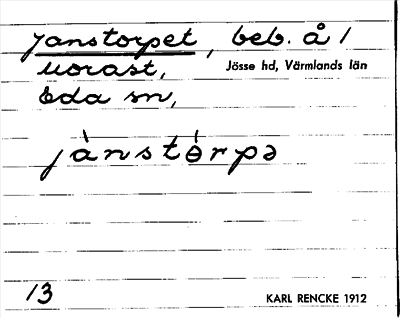 Janstorpet, beb. å 1
Morast, Jösse hd, Värmlands län
Eda sn,
jànstɵ́rpə
13 KARL RENCKE 1912